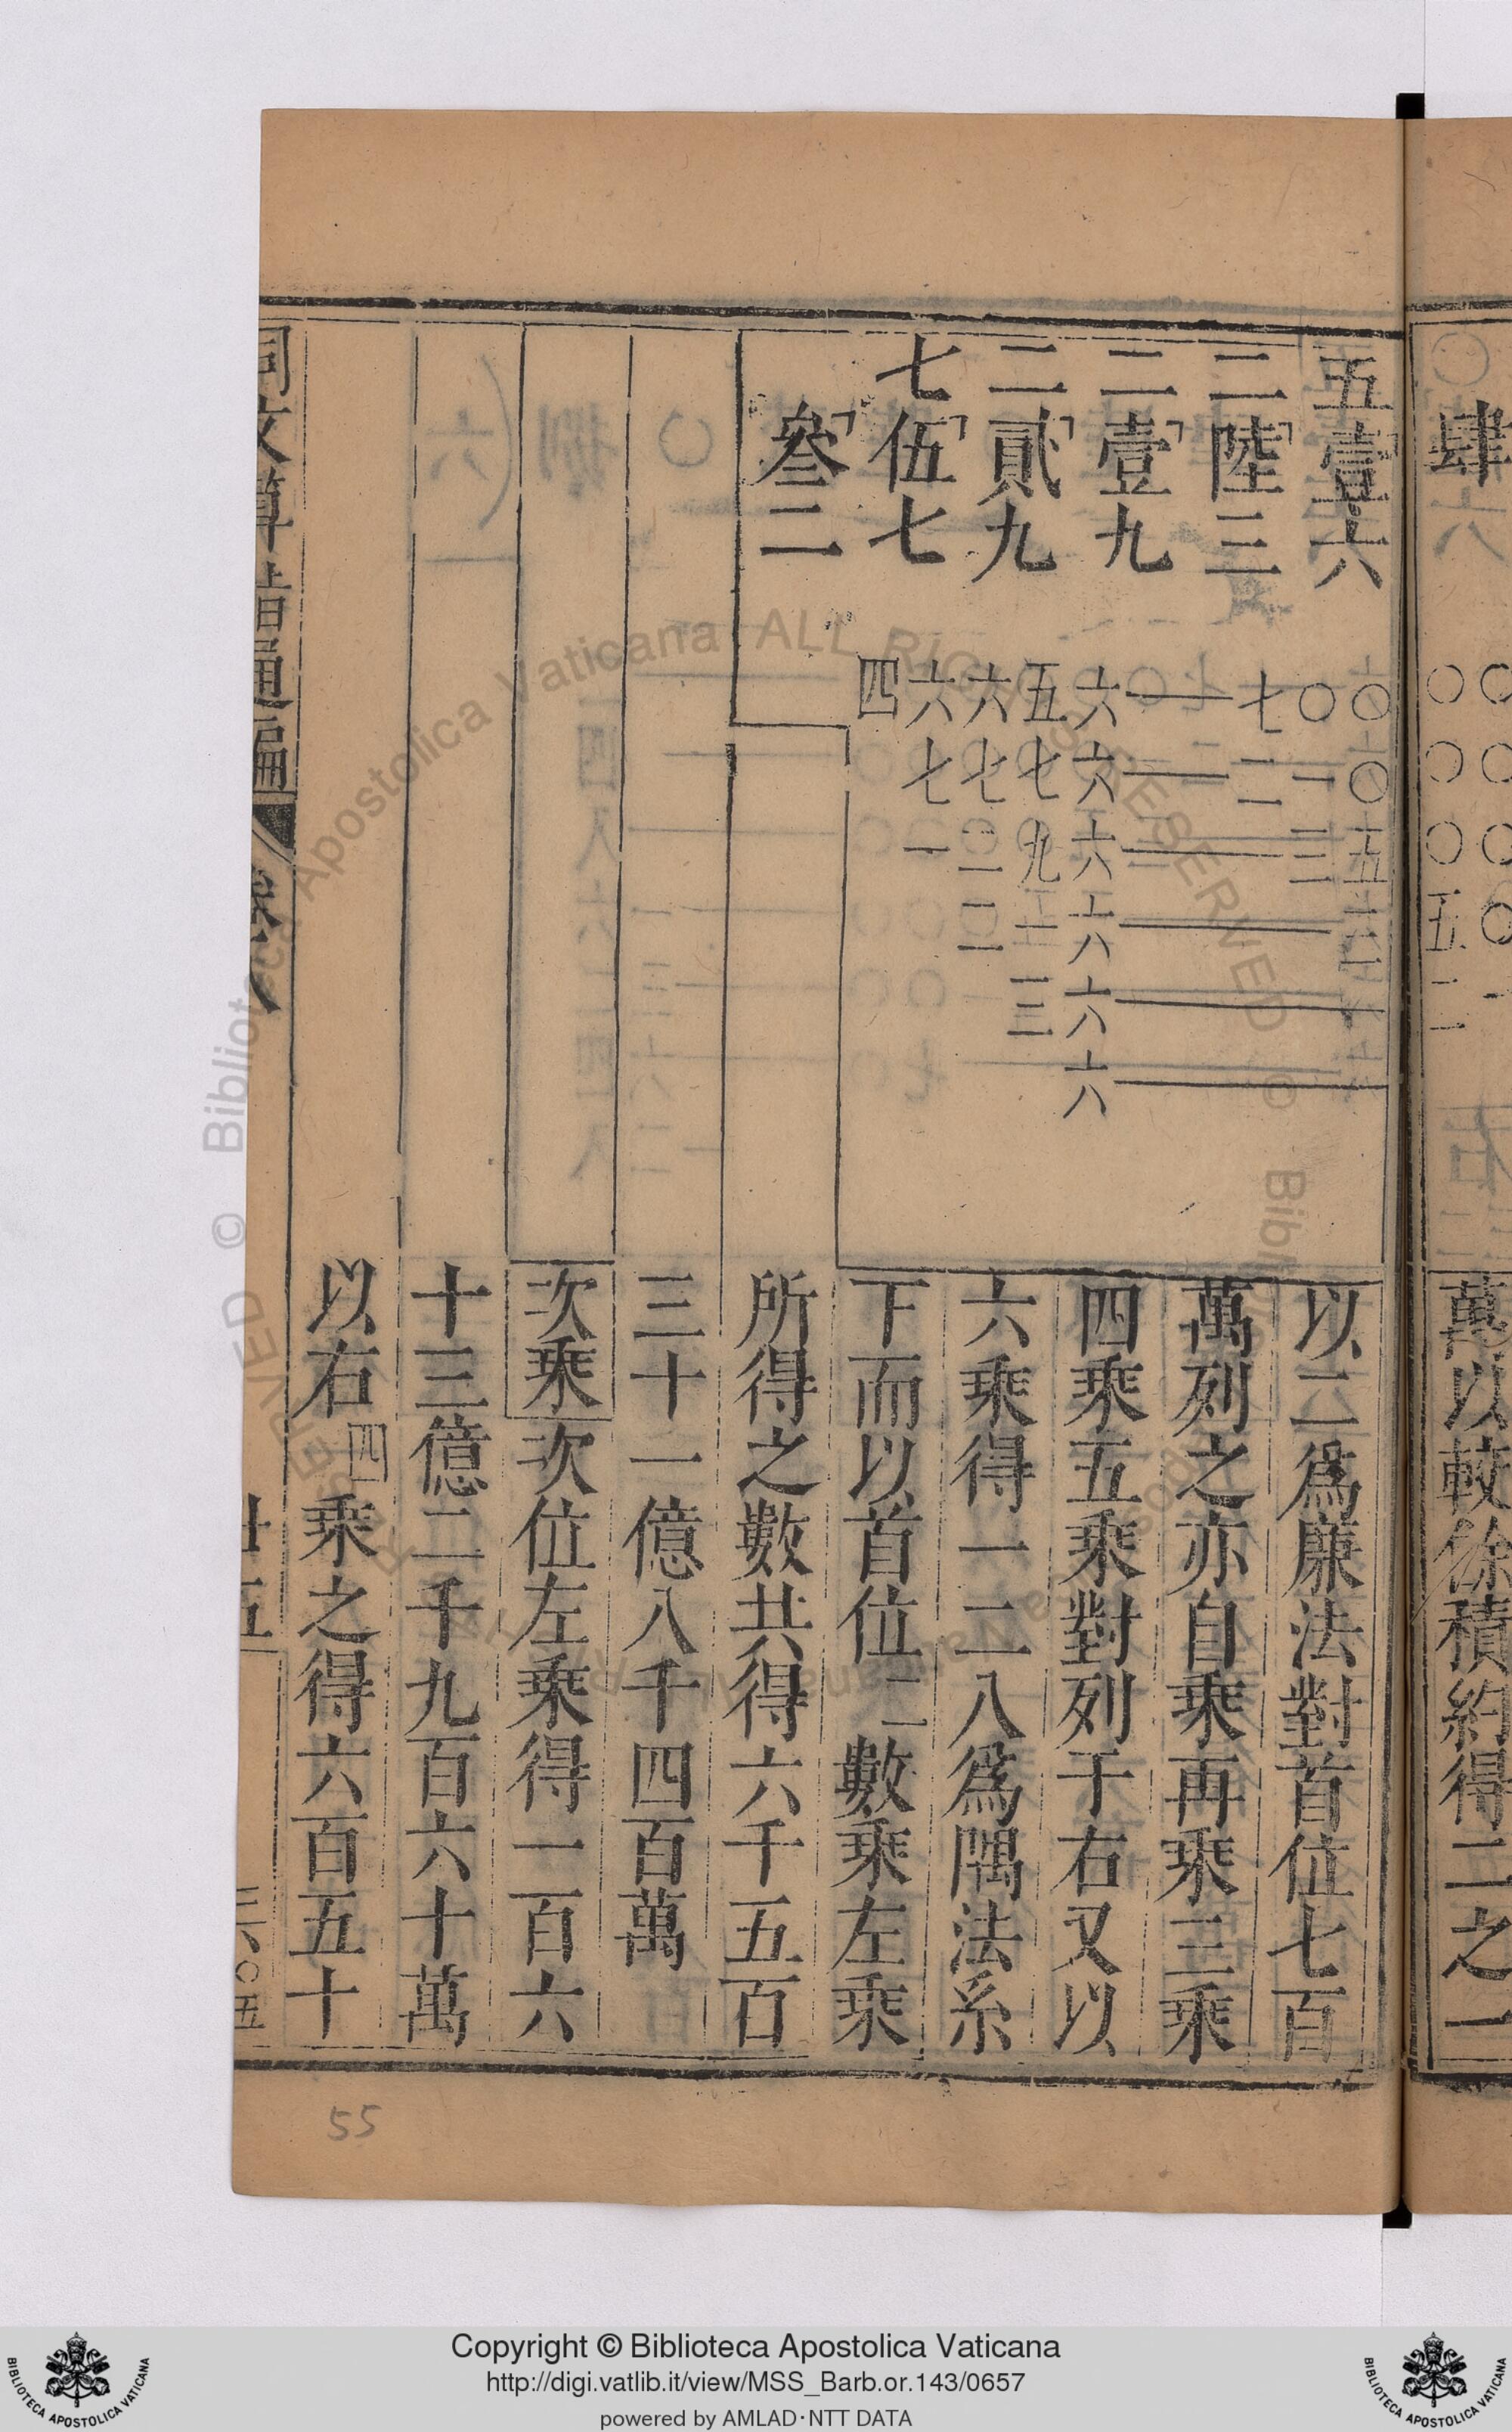 肆
〇〇〇〇一
〇〇〇五二
萬以較餘積約得二之一
五壹六
二陸三
二壹九
二貳九
七伍七
叄二
〇〇五二
〇一三
七二
六六六六六六
五七九一三
六七二二
六七一
四
以二爲廉法對首位七百
萬列之亦自乘再乘三乘
四乘五乘對列于右又以
六乘得一二八爲隅法系
下而以首位二數乘左乘
所得之數共得六千五百
三十一億八千四百萬
次乘次位左乘得一百六
十三億二千九百六十萬
以右四乘之得六百五十
同文算指通編
卷八
廿五
三六〇五
55
© Biblioteca Apostolica Vaticana ALL RIGHTS RESERVED
Copyright © Biblioteca Apostolica Vaticana
http://digi.vatlib.it/view/MSS_Barb.or.143/0657
powered by AMLAD·NTT DATA
BIBLIOTECA APOSTOLICA VATICANA
BIBLIOTECA APOSTOLICA VATICANA